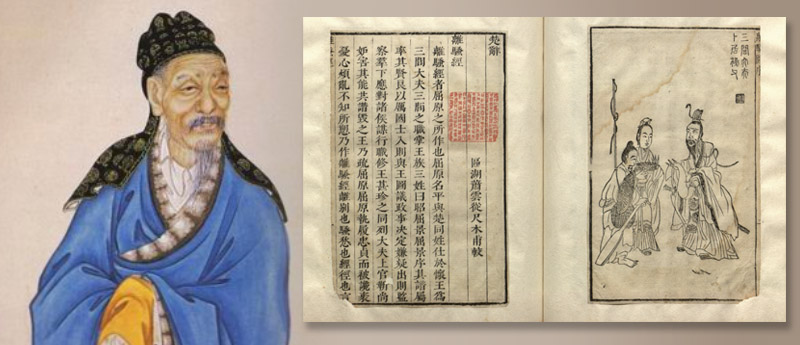 三閭大夫
卜居漁父
楚辭
離騷經
區湖蕭雲從尺木甫較
離騷經者屈原之所作也屈原名平與楚同姓仕於懷王爲
三閭大夫三閭之職掌王族三姓曰昭屈景屈原序其譜屬
率其賢良以厲國士入則與王圖議政事決定嫌疑出則監
察羣下應對諸侯謀行職修王甚珍之同列大夫上官靳尚
妒害其能共譖毀之王乃疏屈原屈原執履忠貞而被讒衺
憂心煩亂不知所愬乃作離騷經離別也騷愁也經徑也言